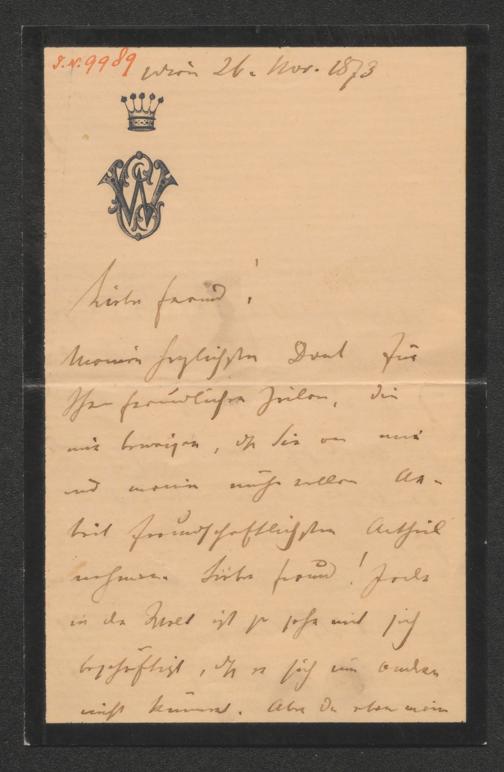 J.N. 9989
Wien 26. Nov. 1873
W
Lieber Freund!
Meinen herzlichsten Dank für
Ihre freundlichen Zeilen, die
mir beweisen, dß Sie an mir
und meiner mühevollen Ar-
beit freundschaftlichsten Antheil
nehmen. Lieber Freund! Jeder
in der Welt ist so sehr mit sich
beschäftigt, dß er sich um andere
nicht kümmert. Aber